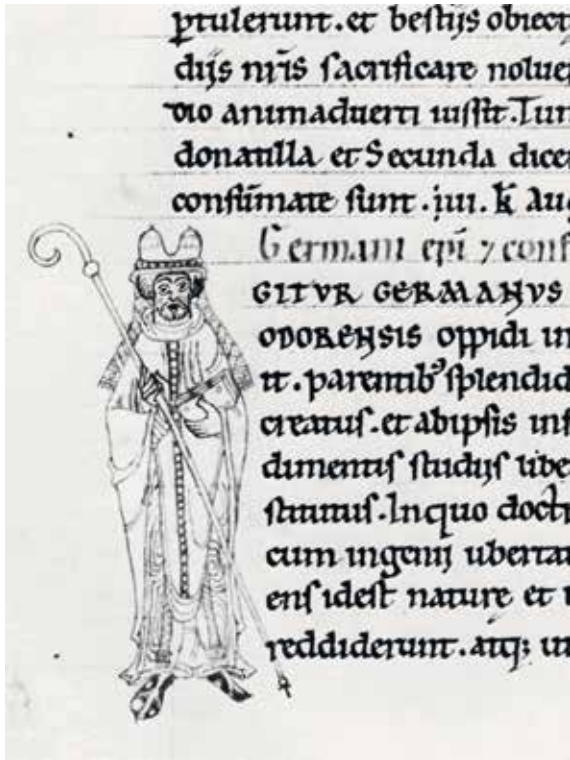 ptulerunt. et bestijs obiect
dijs nr̄is sacrificare nolue
dio animaduerti iussit. Tun
donatilla et Secunda dice
consūmate sunt. iii. k̄ Aug
Germani ep̄i ⁊ conf
GITVR GERMANVS
ODORENSIS oppidi in
it. parentib᾽ splendid
creatus. et abipsis inf
dimentis studijs libe
stitutus. Inquo doctr
cum ingenij ubertat
ens idest nature et
reddiderunt. atq; ut